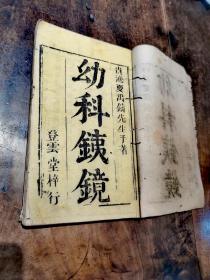 貴池夏禹鑄先生手著
幼科銕鏡
登雲堂梓行